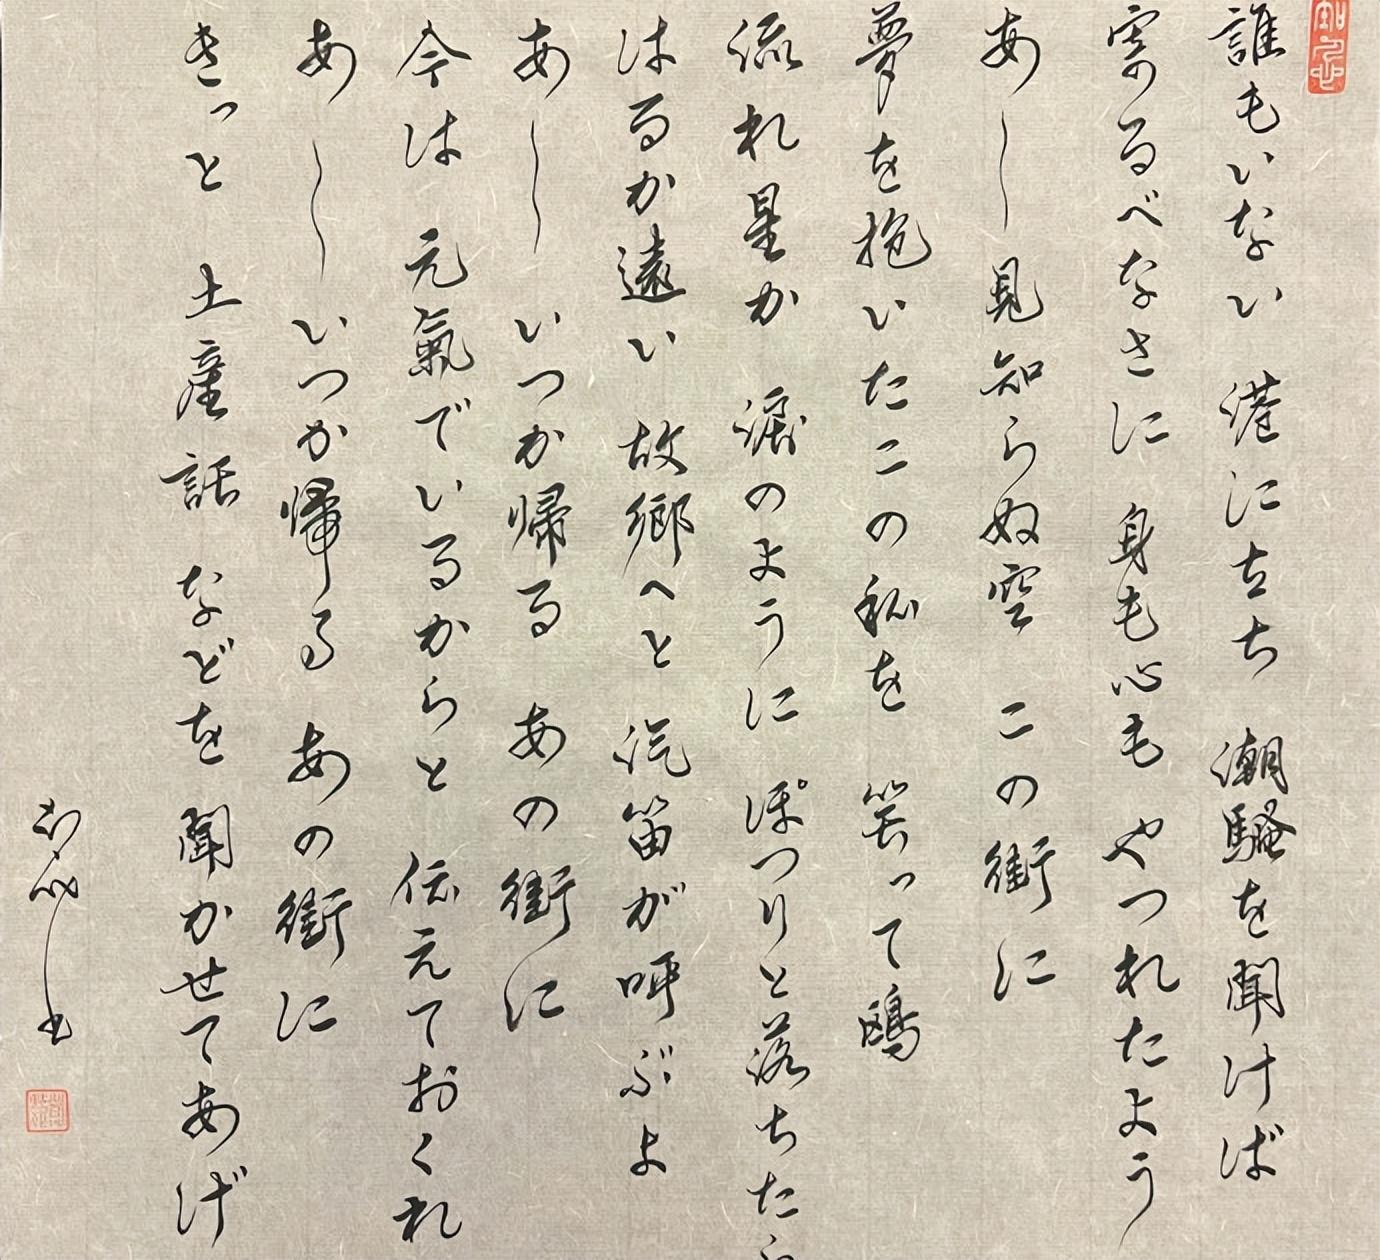 誰もいない 港に立ち 潮騒を聞けば
寄るべなさに 身も心も やつれたよう
あー 見知らぬ空 この街に
夢を抱いたこの私を 笑って鴎
流れ星か 涙のように ぽつりと落ちたら
はるか遠い 故郷へと 汽笛が呼ぶよ
あー いつか帰る あの街に
今は 元氣でいるからと 伝えておくれ
あー いつか帰る あの街に
きっと 土産話 などを 聞かせてあげ